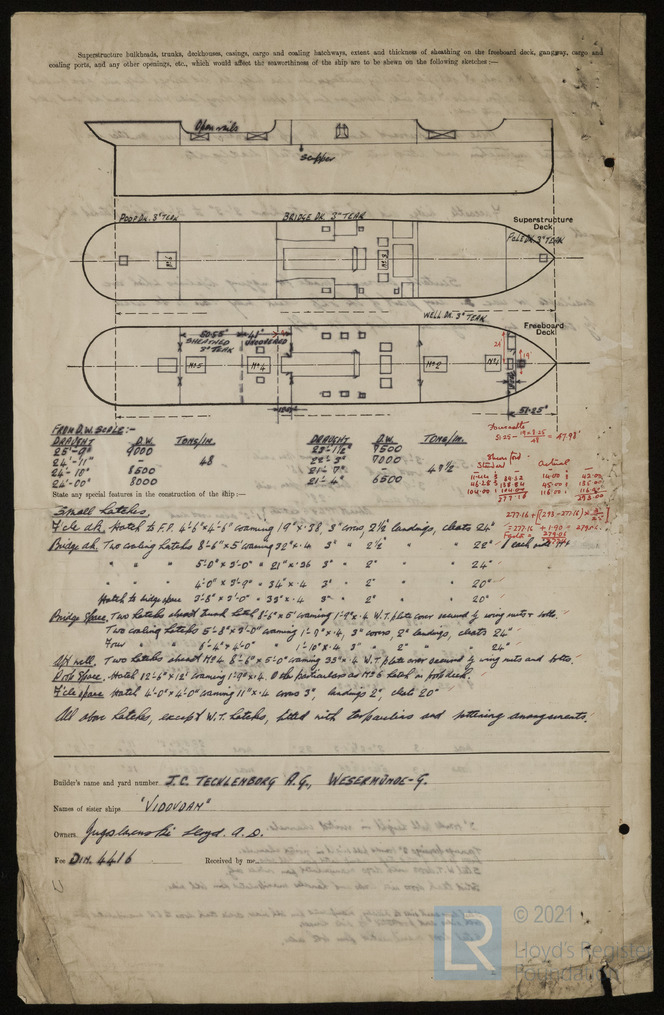 Superstructure bulkheads, trunks, deckhouses, casings, cargo and coaling hatchways, extent and thickness of sheathing on the freeboard deck, gangway, cargo and
coaling ports, and any other openings, etc., which would affect the seaworthiness of the ship are to be shewn on the following sketches :—
Open rails
Scupper
POOP DK. 3" TEAK
BRIDGE DK. 3" TEAK
Superstructure
Deck
F'CLE DK. 3" TEAK
No 6
No 3
WELL DK. 3" TEAK
Freeboard
Deck
SHEATHED
3" TEAK
No 5
No 4
No 2
No 1
51.25"
FROM D.W. SCALE:-
DRAUGHT D.W. TONS/IN. DRAUGHT D.W. TONS/IN.
25'-9" 9000 7500
24'-11" 48 22'-3" 7000
24'-10" 8500 21'-7"
24'-00" 8000 21'-4" 6500
Forecastle
= 47.98'
Sheer ford
Standard Actual
State any special features in the construction of the ship :—
Small hatches.
F'cle dk. Hatch to F.P. 4'-6"x4'-6" coaming 19"x.38, 3" covers, 2½" landings, cleats 24"
Bridge dk. Two coaling hatches 8'-6"x5' coaming 32"x.4 3" " 2½" " 22"
" " " 5'-0"x3'-0" " 21"x.36 3" " 2" " 24"
" " " 4'-0"x3'-9" " 34"x.4 3" " 2" " 20"
Hatch to bridge space 3'-8"x3'-0" " 33"x.4 3" " 2" " 20"
Bridge space. Two hatches abreast trunk hatch 8'-6"x5' coaming 1'-9"x.4 W.T. plate cover secured by wing nuts & bolts.
Two coaling hatches 5'-8"x3'-0" coaming 1'-9"x.4, 3" covers, 2" landings, cleats 24"
Four " " 6'-4"x4'-0" " 1'-10"x.4 3" " 2" " 24"
Aft well. Two hatches abreast No 4 8'-6"x5'-0" coaming 33"x.4 W.T. plate cover secured by wing nuts and bolts.
Poop Space. Hatch 12'-6"x12' coaming 1'-9"x.4. Other particulars as No 6 hatch in poop deck.
F'cle space Hatch 4'-0"x4'-0" coaming 11"x.4 covers 3", landings 2", cleats 20"
All above hatches, except W.T. hatches, fitted with tarpaulins and battening arrangements.
Builder's name and yard number J.C. TECKLENBORG A.G., WESERMÜNDE-G.
Names of sister ships "VIDOVDAN"
Owners Jugoslavenski Lloyd. A.D.
Fee DIN. 4416 Received by me
© 2021
Lloyd's Register
Foundation
LR